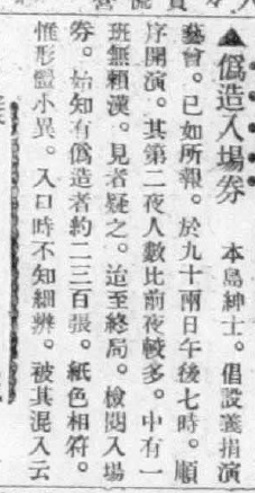 ▲僞造入塲券　本島紳士。倡設義捐演
藝會。已如所報。於九十兩日午後七時。順
序開演。其第二夜人數比前夜較多。中有一
班無賴漢。見者疑之。迨至終局。檢閱入塲
券。始知有僞造者約二三百張。紙色相符。
惟形體小異。入口時不知細辨。被其混入云